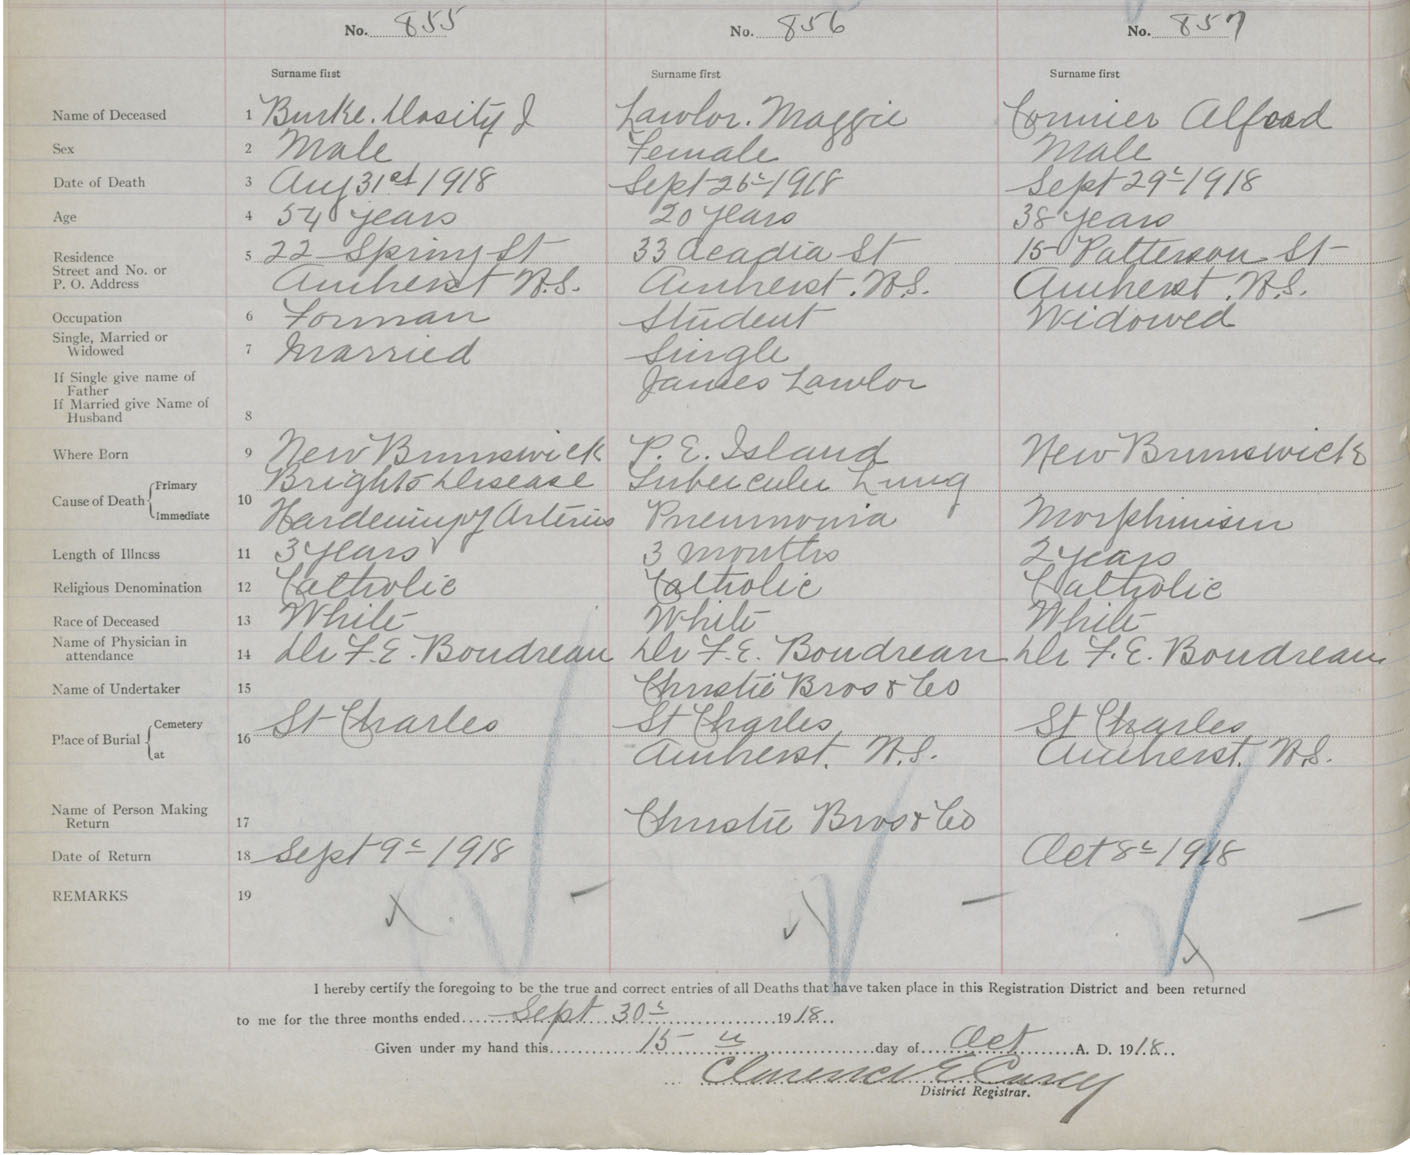 No. 855 No. 856 No. 857
Surname first Surname first Surname first
Name of Deceased 1 Burke. Dosity J Lawlor. Maggie Cormier Alfred
Sex 2 Male Female Male
Date of Death 3 Aug 31st 1918 Sept 26th 1918 Sept 29th 1918
Age 4 54 years 20 years 38 years
Residence 5 22 Spring St 33 Acadia St 15 Patterson St
Street and No. or
P. O. Address Amherst N.S. Amherst. N.S. Amherst. N.S.
Occupation 6 Forman Student Widowed
Single, Married or
Widowed 7 Married Single
If Single give name of James Lawlor
Father
If Married give Name of
Husband 8
Where Born 9 New Brunswick P. E. Island New Brunswick
Cause of Death Primary 10 Brights Disease Tubercular Lung
Immediate Hardening of Arteries Pneumonia Morphinism
Length of Illness 11 3 years 3 months 2 years
Religious Denomination 12 Catholic Catholic Catholic
Race of Deceased 13 White White White
Name of Physician in
attendance 14 Dr F. E. Boudreau Dr F. E. Boudreau Dr F. E. Boudreau
Name of Undertaker 15 Christie Bros & Co
Place of Burial Cemetery 16 St Charles St Charles St Charles
at Amherst. N.S. Amherst. N.S.
Name of Person Making
Return 17 Christie Bros & Co
Date of Return 18 Sept 9th 1918 Oct 8th 1918
REMARKS 19
I hereby certify the foregoing to be the true and correct entries of all Deaths that have taken place in this Registration District and been returned
to me for the three months ended Sept 30th 1918.
Given under my hand this 15th day of Oct A. D. 1918.
Clarence E Casey
District Registrar.